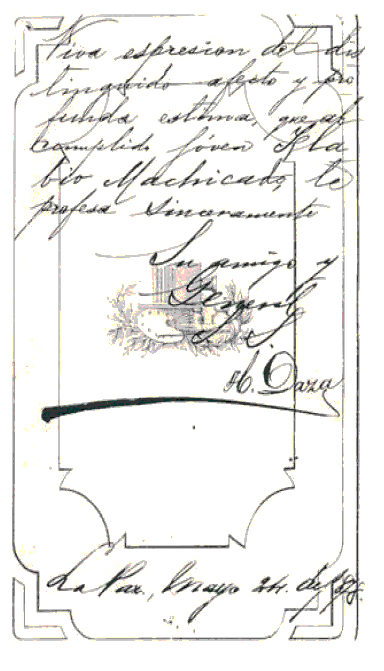 Viva espresion del dis
linguido afecto y pro
funda estima, que al
cumplido jóven Fla
bio Machicado, le
profesa sinceramente
Su amigo y
General
S. S.
H. Daza
La Paz, Mayo 24. de